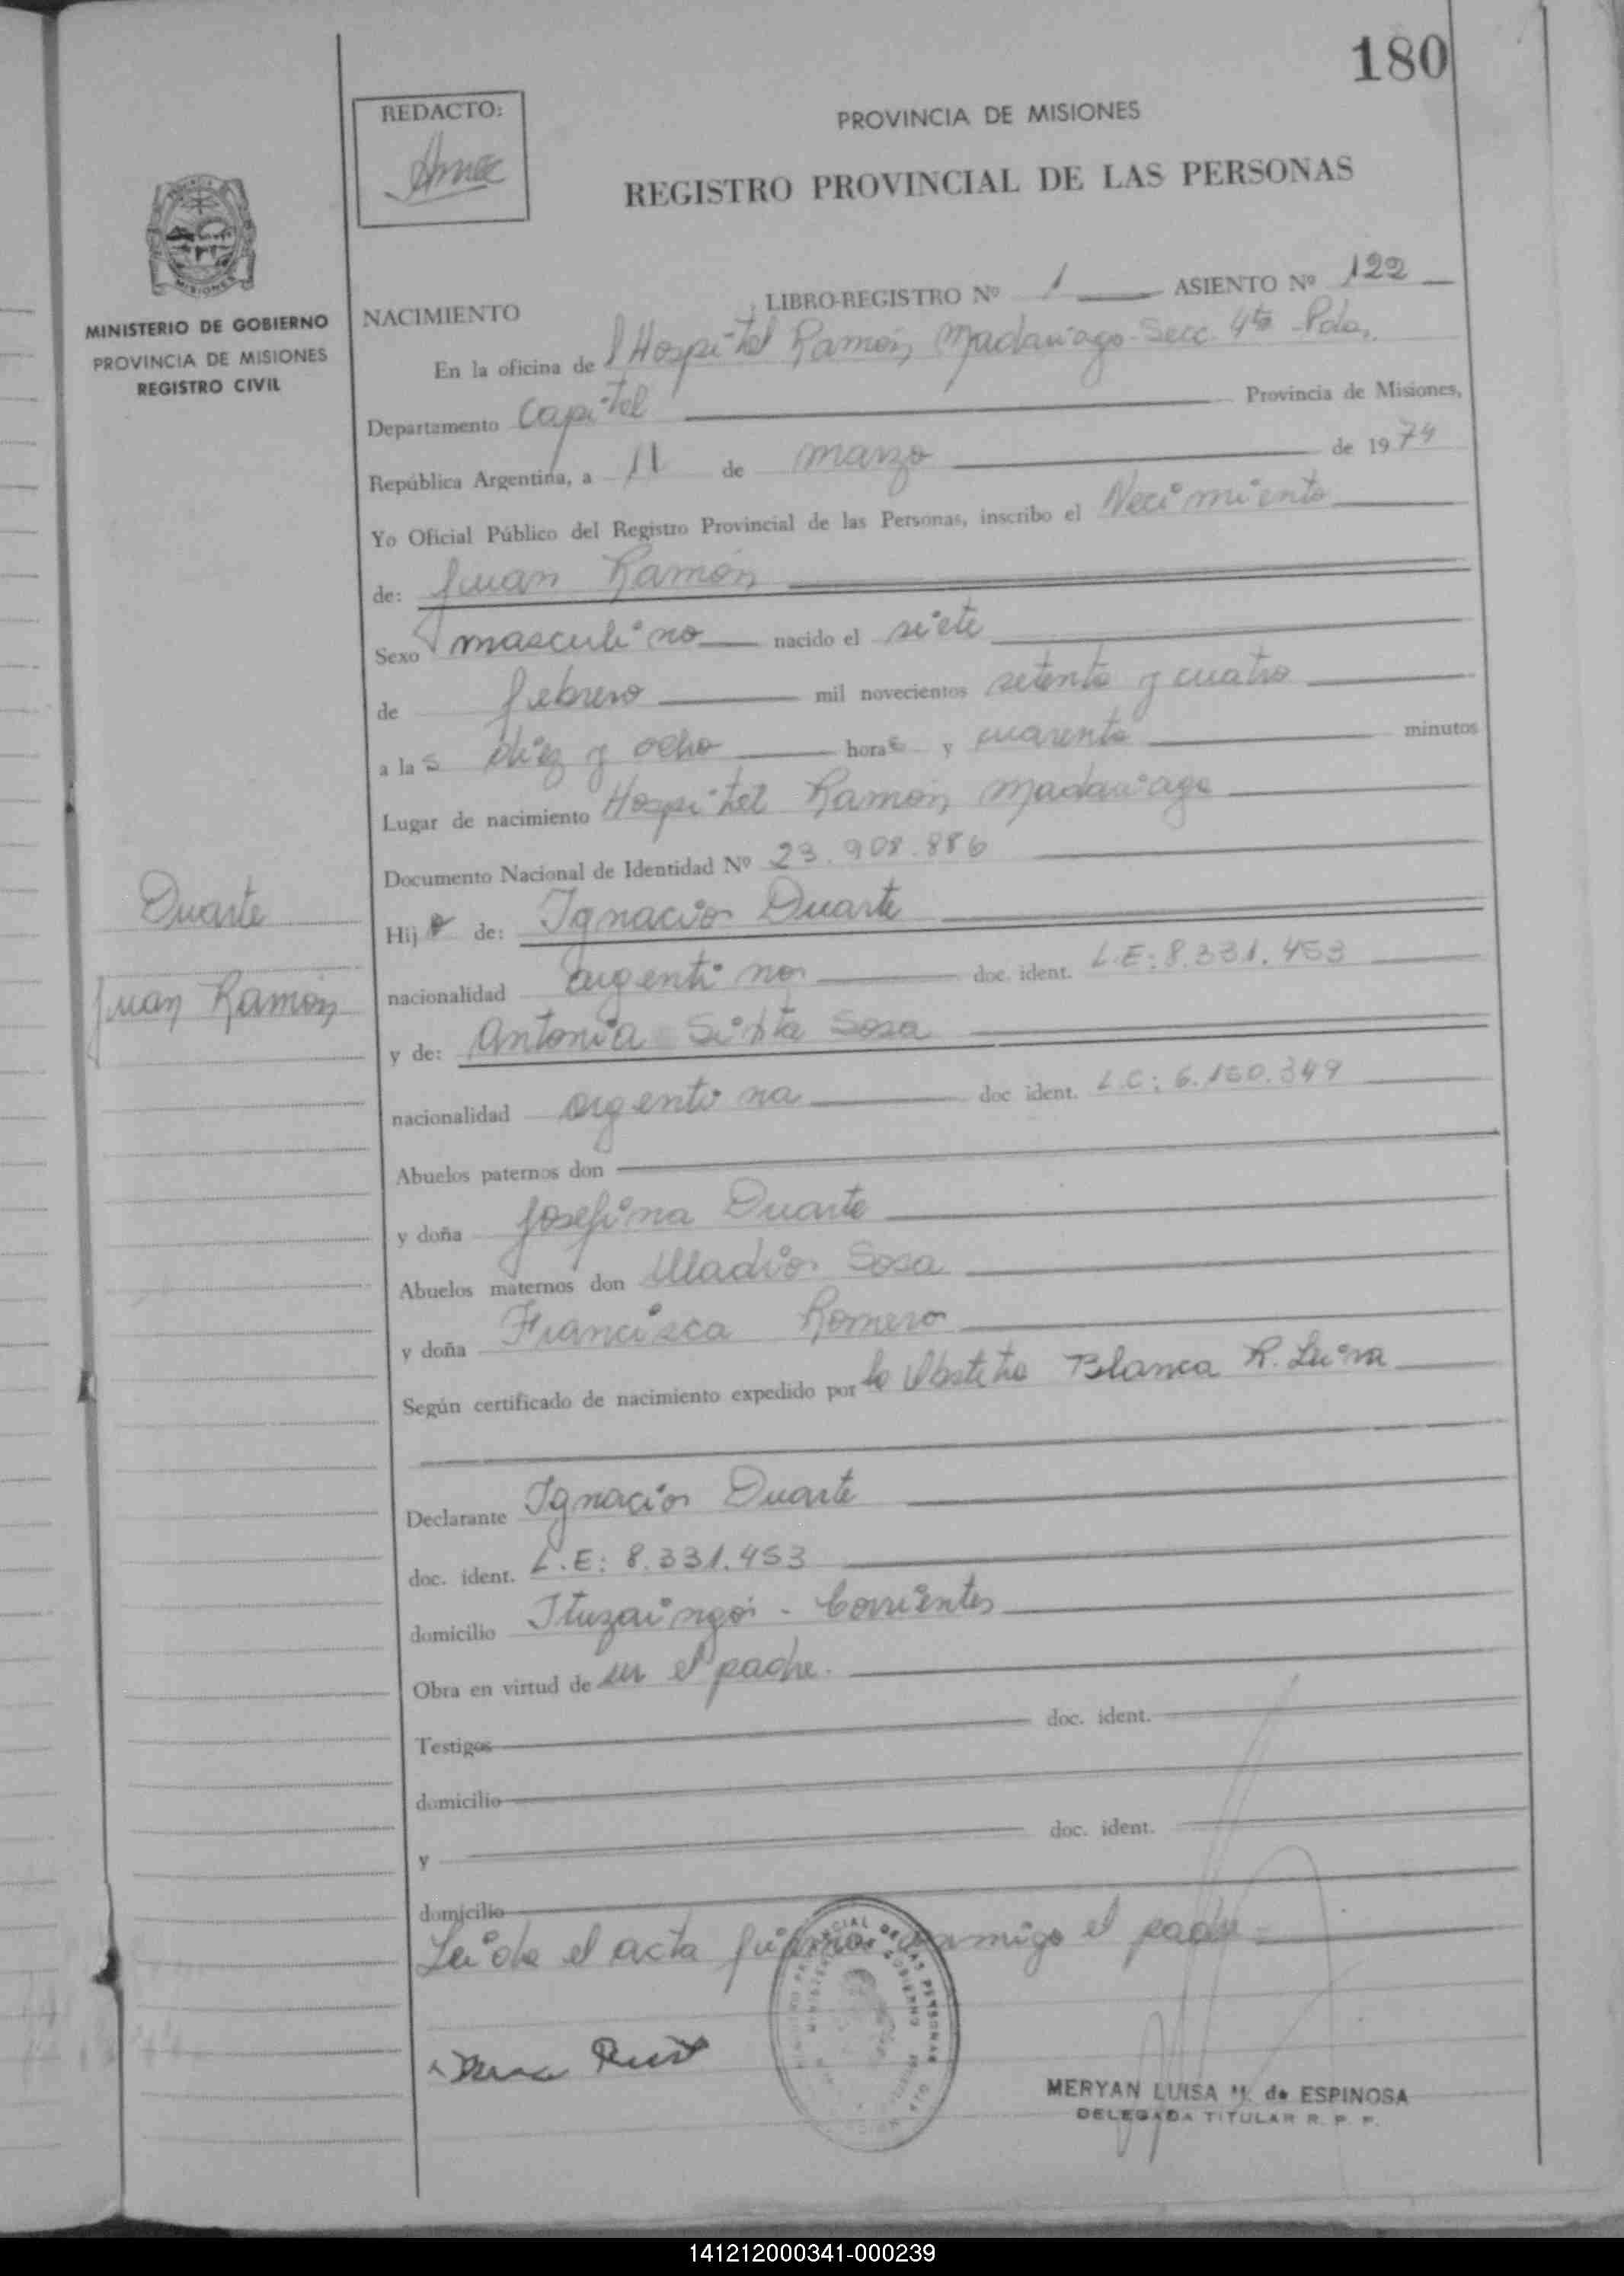 180
REDACTO:
PROVINCIA DE MISIONES
REGISTRO PROVINCIAL DE LAS PERSONAS
MISIONES
MINISTERIO DE GOBIERNO
PROVINCIA DE MISIONES
REGISTRO CIVIL
NACIMIENTO
LIBRO-REGISTRO Nº 1 ASIENTO Nº 122
En la oficina de l Hospital Ramón Madariaga - Secc. 4ta - Pdas.
Departamento Capital Provincia de Misiones,
República Argentina, a 11 de marzo de 1974
Yo Oficial Público del Registro Provincial de las Personas, inscribo el Nacimiento
de: Juan Ramón
Sexo masculino nacido el siete
de febrero mil novecientos setenta y cuatro
a las diez y ocho horas y cuarenta minutos
Lugar de nacimiento Hospital Ramón Madariaga
Documento Nacional de Identidad Nº 23.908.886
Duarte
Juan Ramón
Hijo de: Ignacio Duarte
nacionalidad argentino doc. ident. L.E: 8.331.453
y de: Antonia Sixta Sosa
nacionalidad argentina doc ident. L.C: 6.150.349
Abuelos paternos don
y doña Josefina Duarte
Abuelos maternos don Uladio Sosa
y doña Francisca Romero
Según certificado de nacimiento expedido por la Obstetra Blanca R. Leiva
Declarante Ignacio Duarte
doc. ident. L.E: 8.331.453
domicilio Ituzaingó - Corrientes
Obra en virtud de ser el padre.
Testigos doc. ident.
domicilio
y doc. ident.
domicilio
Leída el acta firma conmigo el padre
MERYAN LUISA M. de ESPINOSA
DELEGADA TITULAR R. P. P.
141212000341-000239